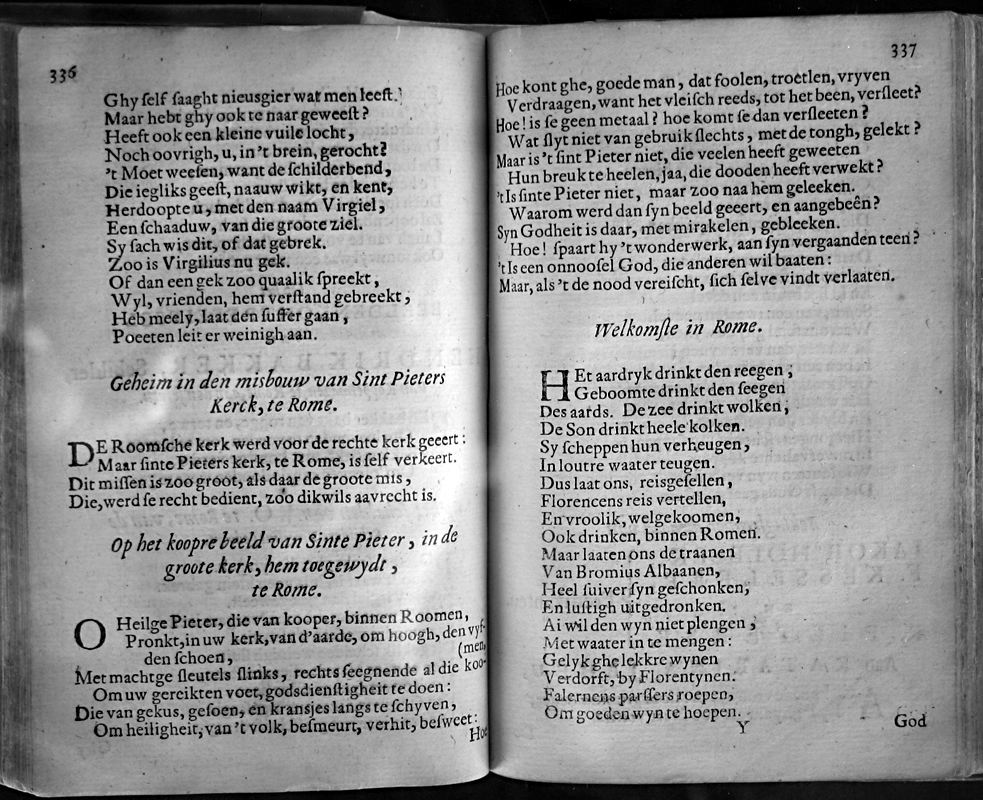 336
Ghy ſelf ſaaght nieusgier wat men leeſt.
Maar hebt ghy ook te naar geweeſt?
Heeft ook een kleine vuile locht,
Noch oovrigh, u, in 't brein, gerocht?
't Moet weeſen, want de ſchilderbend,
Die iegliks geeſt, naauw wikt, en kent,
Herdoopte u, met den naam Virgiel,
Een ſchaaduw, van die groote ziel.
Sy ſach wis dit, of dat gebrek.
Zoo is Virgilius nu gek.
Of dan een gek zoo quaalik ſpreekt,
Wyl, vrienden, hem verſtand gebreekt,
Heb meely, laat den ſuffer gaan,
Poeeten leit er weinigh aan.
Geheim in den misbouw van Sint Pieters
Kerck, te Rome.
DE Roomſche kerk werd voor de rechte kerk geeert:
Maar ſinte Pieters kerk, te Rome, is ſelf verkeert.
Dit miſſen is zoo groot, als daar de groote mis,
Die, werd ſe recht bedient, zoo dikwils aavrecht is.
Op het koopre beeld van Sinte Pieter, in de
groote kerk, hem toegewydt,
te Rome.
O Heilge Pieter, die van kooper, binnen Roomen,
Pronkt, in uw kerk, van d'aarde, om hoogh, den vyf-
den ſchoen, (men,
Met machtge ſleutels ſlinks, rechts ſeegnende al die koo-
Om uw gereikten voet, godsdienſtigheit te doen:
Die van gekus, geſoen, en kransjes langs te ſchyven,
Om heiligheit, van 't volk, beſmeurt, verhit, beſweet:
Hoe
337
Hoe kont ghe, goede man, dat foolen, troetlen, vryven
Verdraagen, want het vleiſch reeds, tot het been, verſleet?
Hoe! is ſe geen metaal? hoe komt ſe dan verſleeten?
Wat ſlyt niet van gebruik ſlechts, met de tongh, gelekt?
Maar is 't ſint Pieter niet, die veelen heeft geweeten
Hun breuk te heelen, jaa, die dooden heeft verwekt?
't Is ſinte Pieter niet, maar zoo na hem geleeken.
Waarom werd dan ſyn beeld geeert, en aangebeên?
Syn Godheit is daar, met mirakelen, gebleeken.
Hoe! ſpaart hy 't wonderwerk, aan ſyn vergaanden teen?
't Is een onnooſel God, die anderen wil baaten:
Maar, als 't de nood vereiſcht, ſich ſelve vindt verlaaten.
Welkomſte in Rome.
HEt aardryk drinkt den reegen;
Geboomte drinkt den ſeegen
Des aards. De zee drinkt wolken;
De Son drinkt heele kolken.
Sy ſcheppen hun verheugen,
In loutre waater teugen.
Dus laat ons, reisgeſellen,
Florencens reis vertellen,
En vroolik, welgekoomen,
Ook drinken, binnen Romen.
Maar laaten ons de traanen
Van Bromius Albaanen,
Heel ſuiver ſyn geſchonken,
En luſtigh uitgedronken.
Ai wil den wyn niet plengen,
Met waater in te mengen:
Gelyk ghe lekkre wynen
Verdorft, by Florentynen.
Falernens parſſers roepen,
Om goeden wyn te hoepen.
Y
God